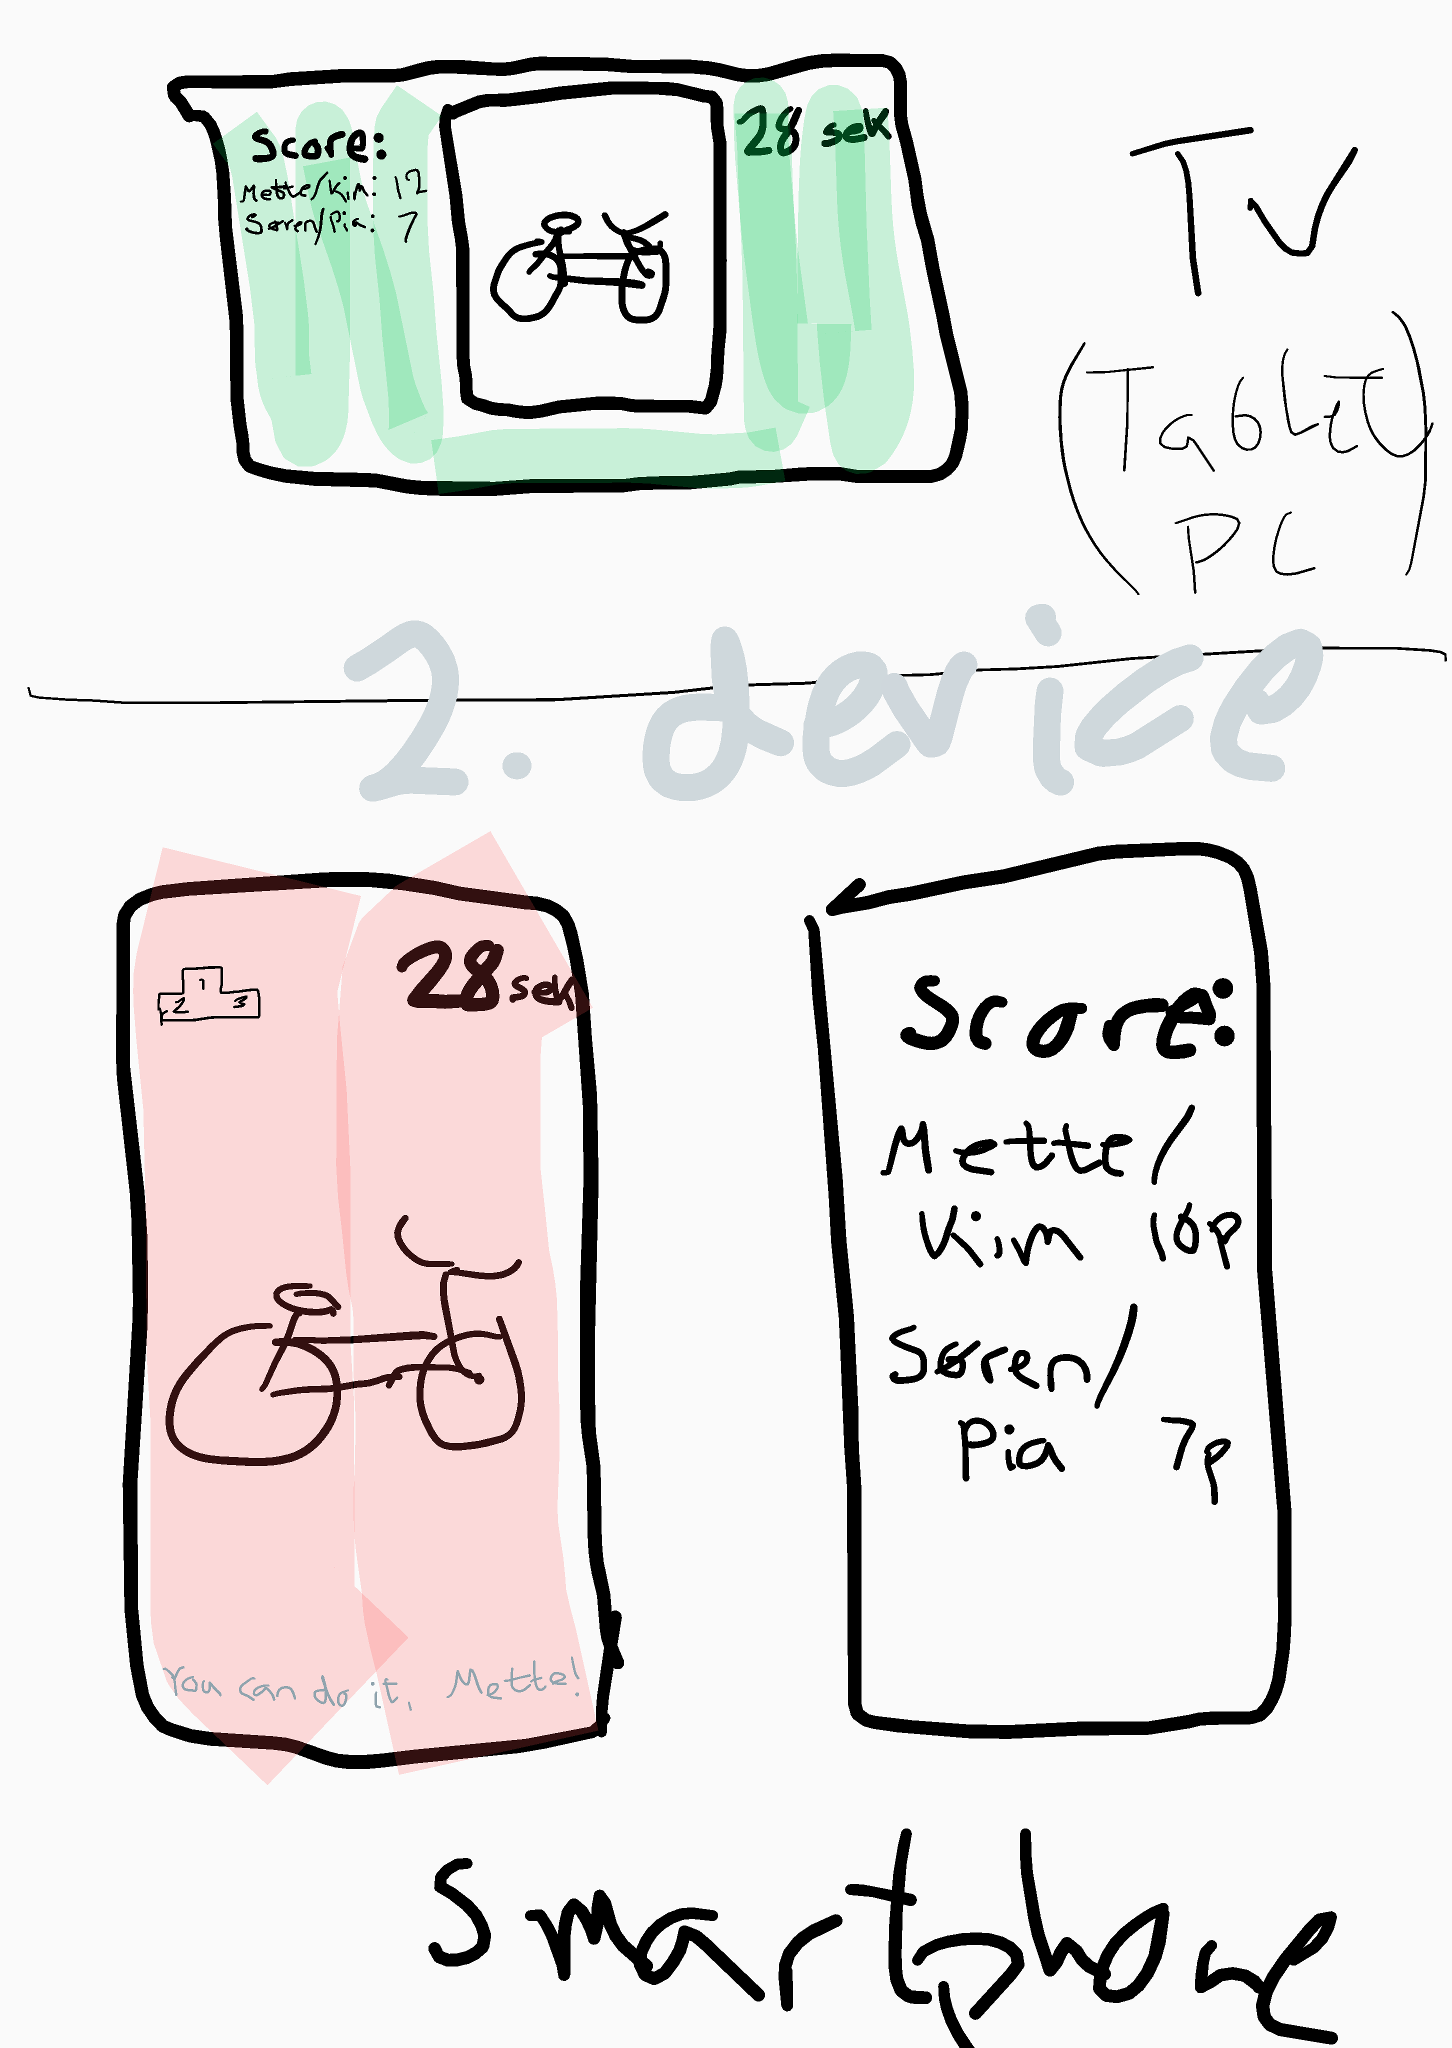 Score:
Mette/Kim: 12
Søren/Pia: 7
28 sek
TV
(Tablet
PC)
2. device
1
2 3
28 sek
You can do it, Mette!
Score:
Mette/
Kim 10p
Søren/
Pia 7p
Smartphone